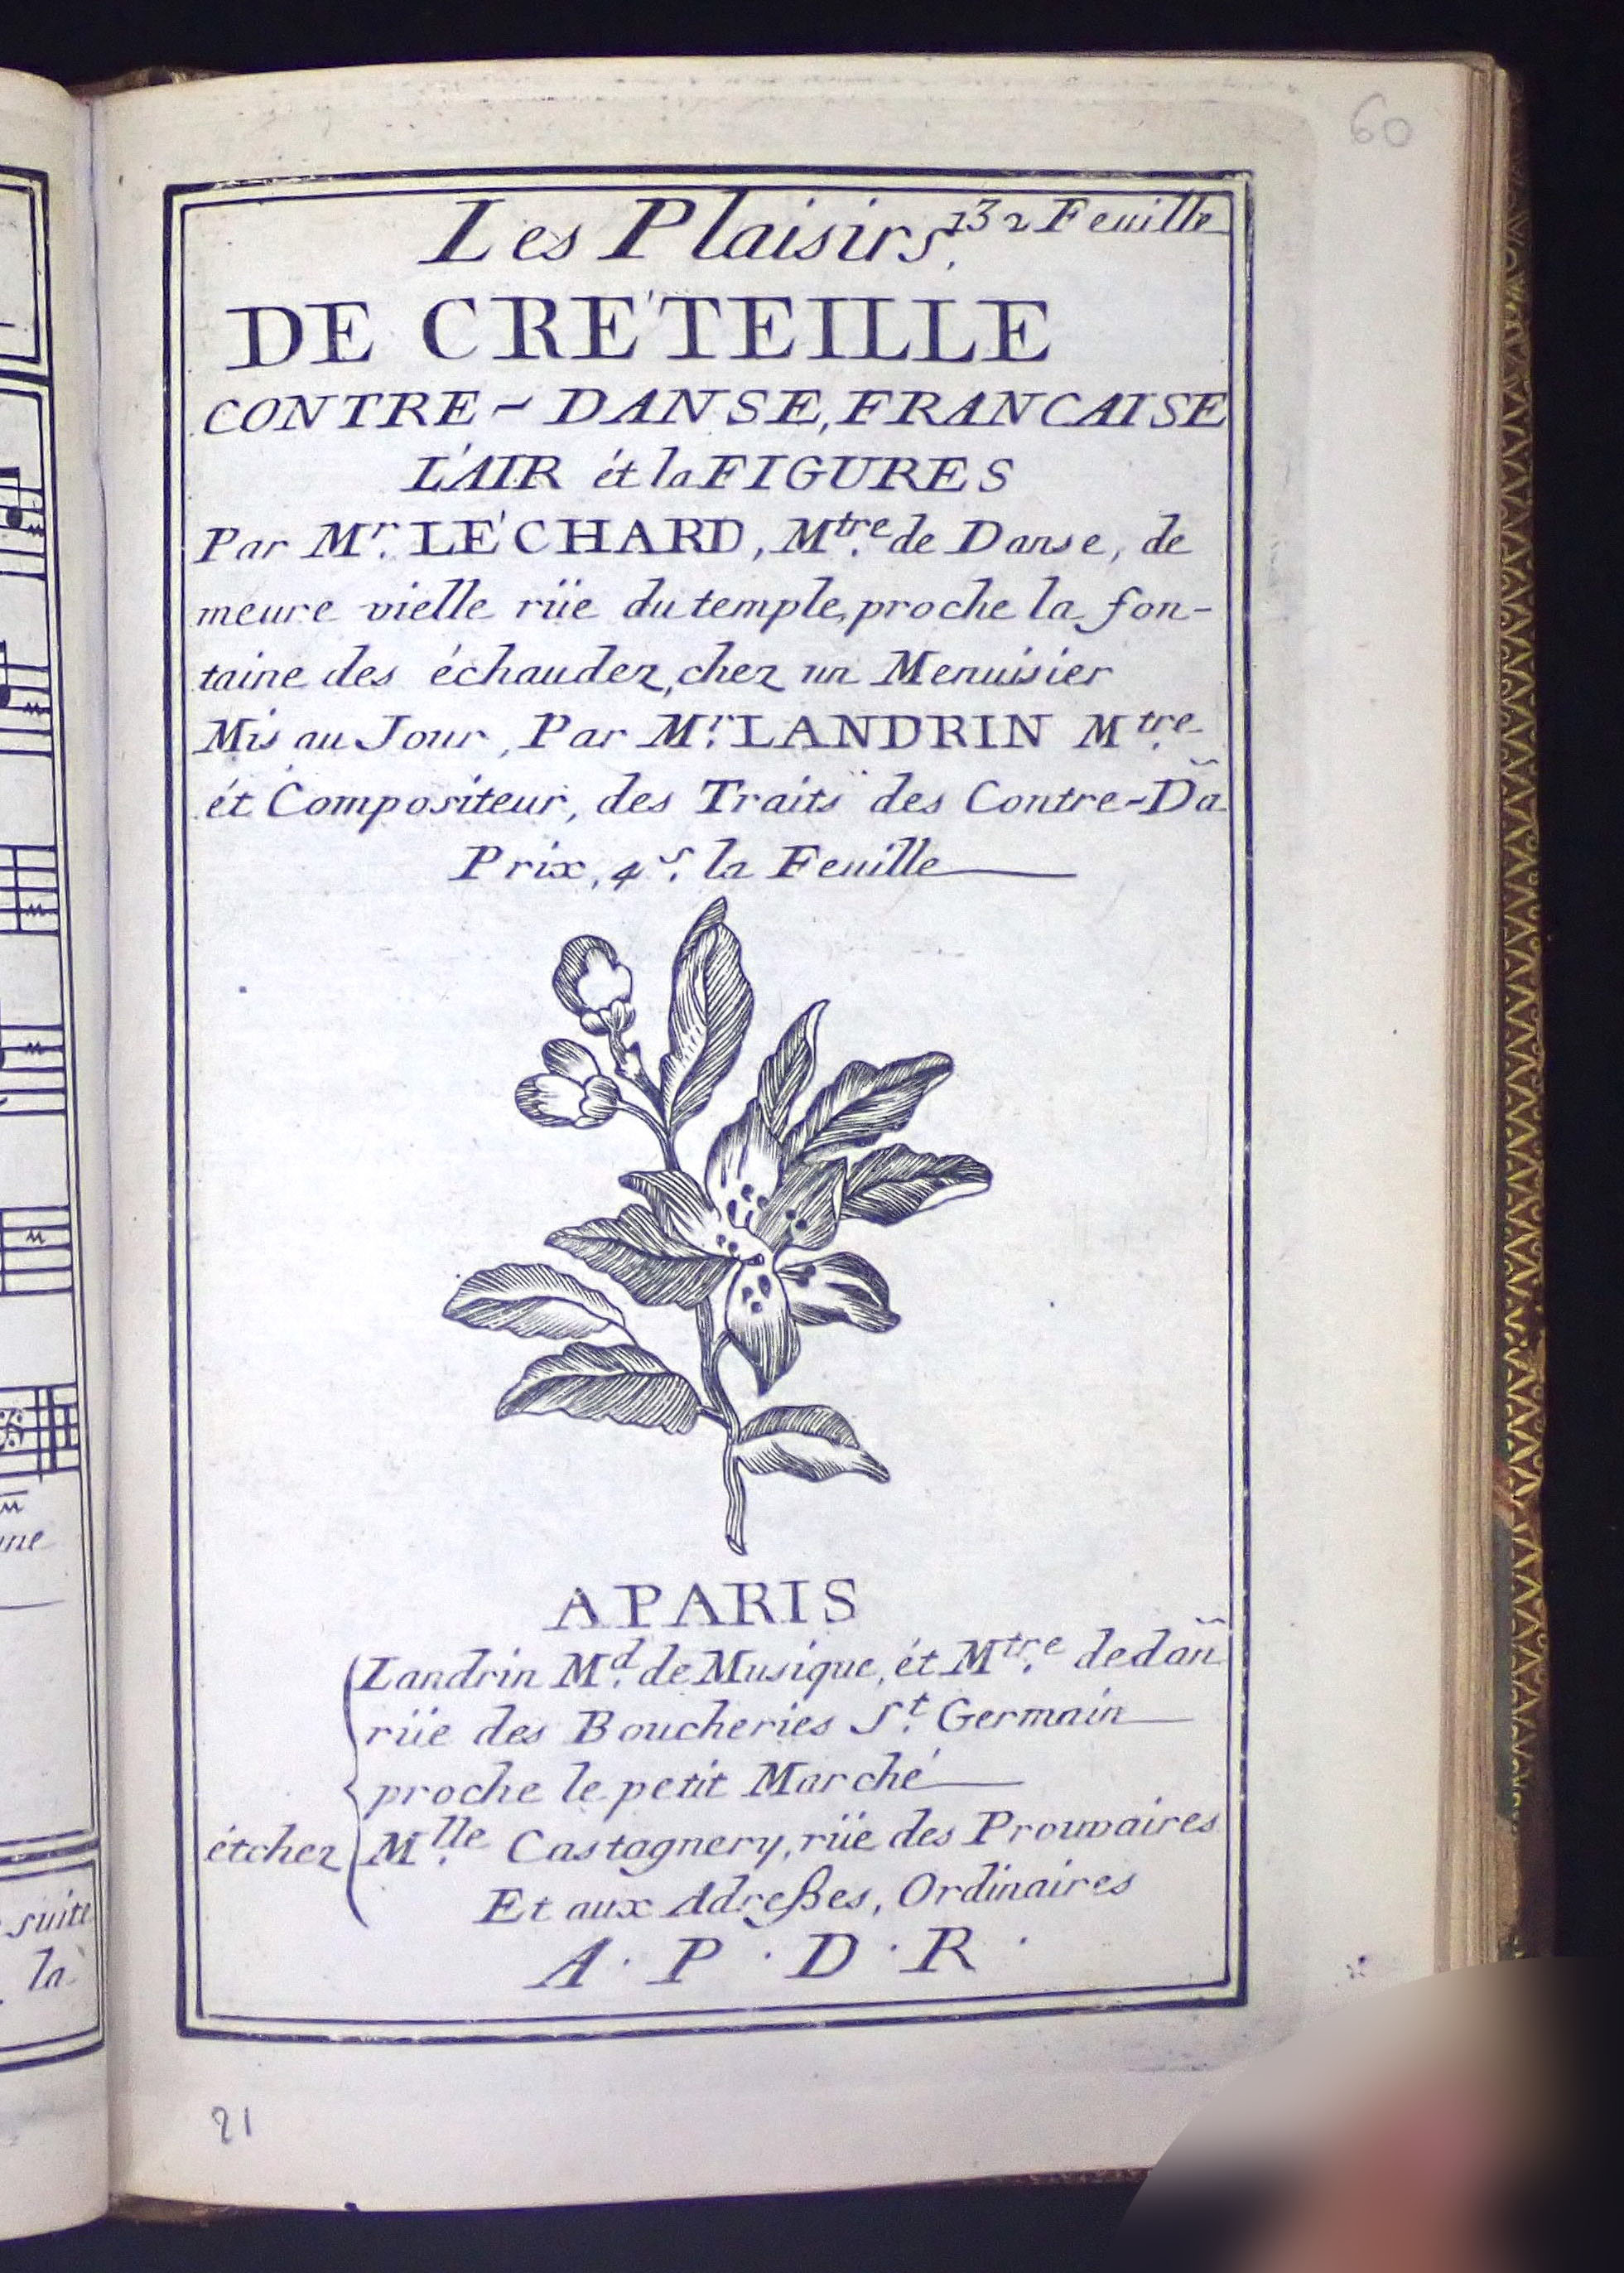 60
132 Feuille
Les Plaisirs,
DE CRÉTEILLE
CONTRE-DANSE, FRANCAISE
L'AIR ét la FIGURES
Par Mr. LÉCHARD, Mtre. de Danse, de
meure vielle rüe du temple, proche la fon-
taine des échaudez, chez un Menuisier
Mis au Jour, Par Mr. LANDRIN Mtre.
ét Compositeur, des Traits des Contre-Dã
Prix, 4s. la Feuille
A PARIS
Landrin Md. de Musique, ét Mtre. de dañ
rüe des Boucheries St. Germain
proche le petit Marché
étchez Mlle. Castagnery, rüe des Prouvaires
Et aux Adreßes, Ordinaires
A. P. D. R.
21
une
suite
la